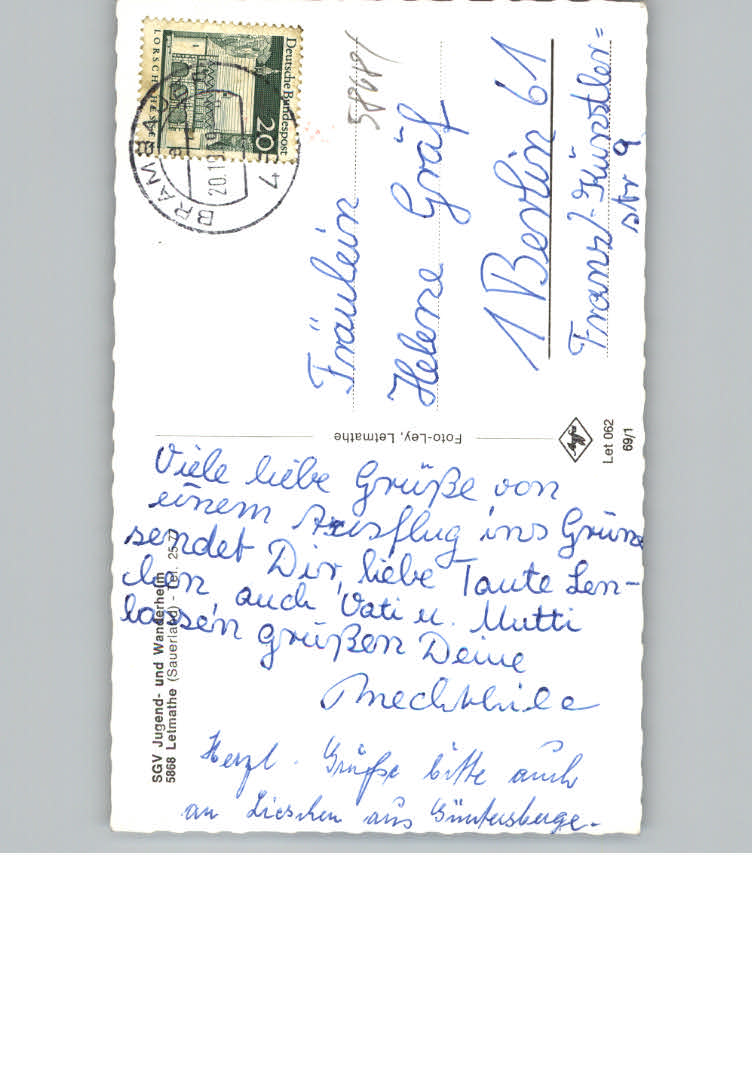 Deutsche Bundespost
20
LORSCH
20.
58681
Fräulein
Helene Gräf
1 Berlin 61
Franz-Künstler=
str 9
Foto-Ley, Letmathe
Agfa
Let 062
69/1
Viele liebe Grüße von
einem Ausflug ins Grüne
sendet Dir, liebe Tante Len-
chen, auch Vati u. Mutti
lassen grüßen Deine
Mechthild
Herzl. Grüße bitte auch
an Lieschen aus Güntersberge.
SGV Jugend- und Wanderheim
5868 Letmathe (Sauerland) - Tel. 25 77